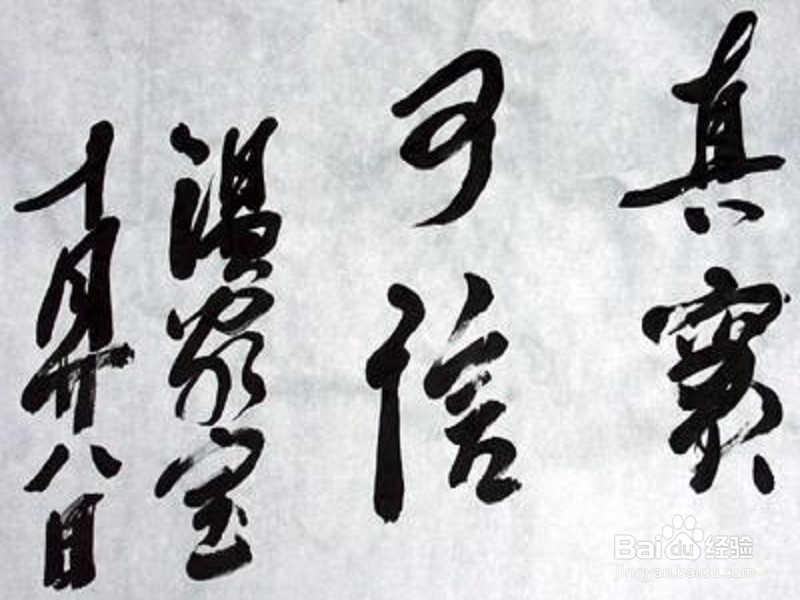 真實
可信
温家宝
十月廿八日
Baidu经验
jingyan.baidu.com